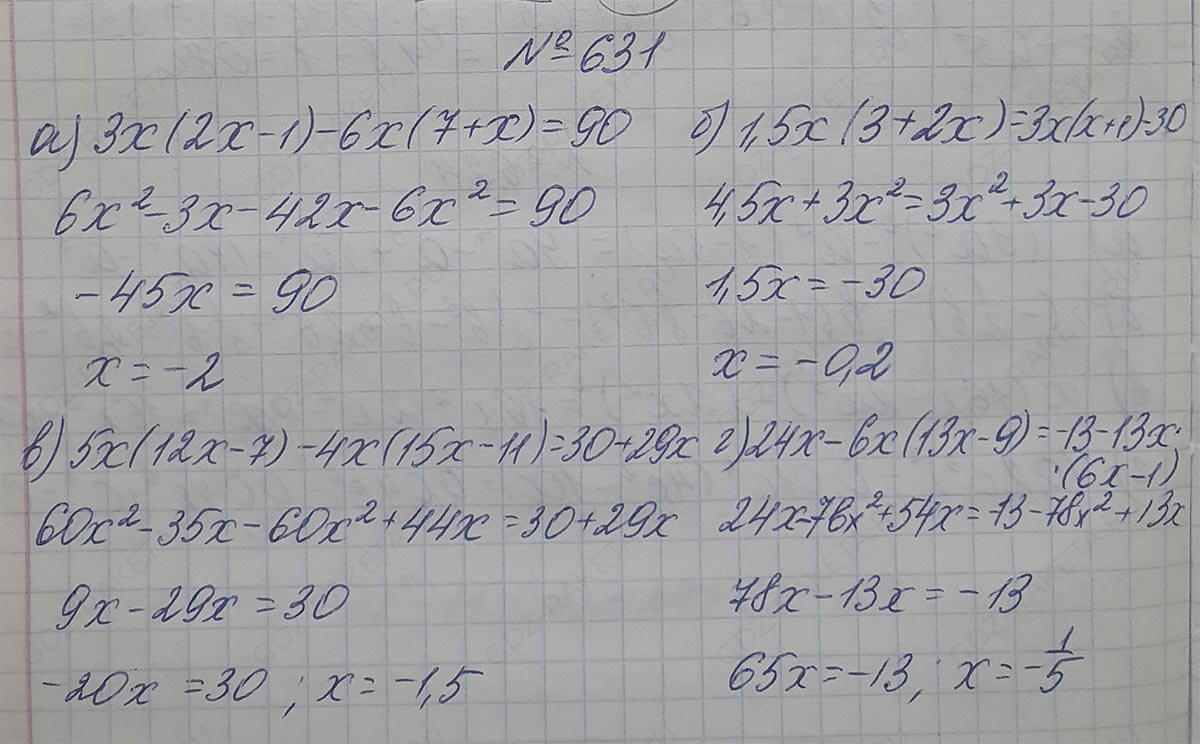 №631
а) 3x(2x-1)-6x(7+x)=90
6x²-3x-42x-6x²=90
-45x=90
x=-2
б) 1,5x(3+2x)=3x(x+1)-30
4,5x+3x²=3x²+3x-30
1,5x=-30
x=-0,2
в) 5x(12x-7)-4x(15x-11)=30+29x
60x²-35x-60x²+44x=30+29x
9x-29x=30
-20x=30; x=-1,5
г) 24x-6x(13x-9)=-13-13x·
·(6x-1)
24x-78x²+54x=-13-78x²+13x
78x-13x=-13
65x=-13; x=-1/5